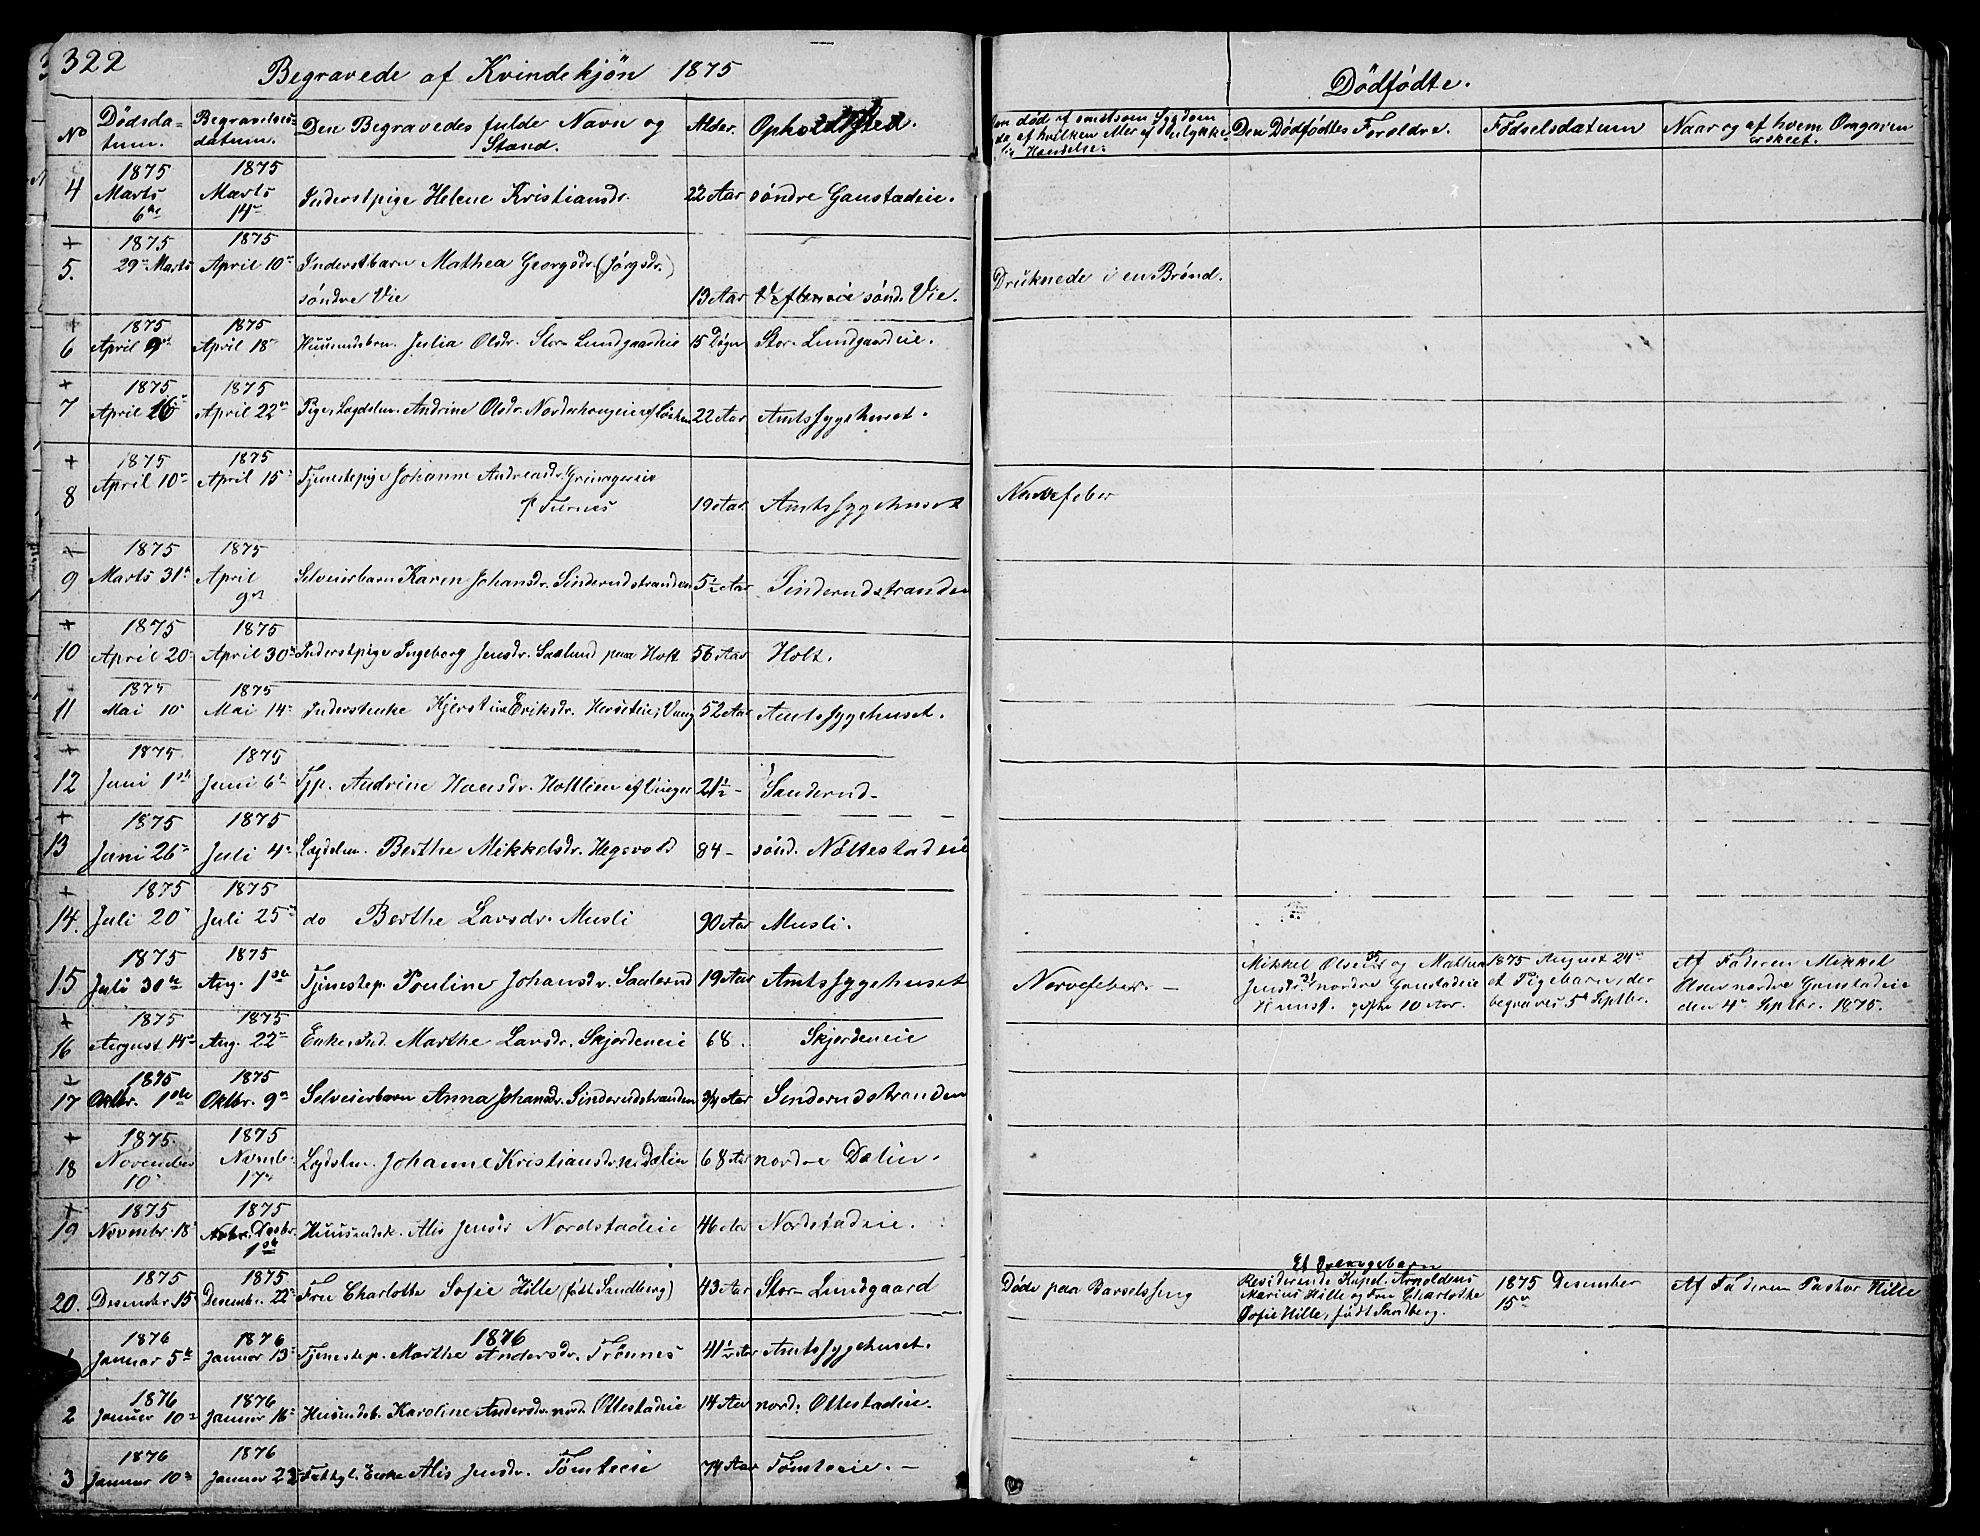 322
Begravede af Kvindekjøn 1875
Dødfødte.
No
Dødsda-
tum.
Begravelses-
datum.
Den Begravedes fulde Navn og
Stand.
Alder.
Opholdssted.
Den Dødfødtes Foreldre.
Fødselsdatum
Naar og af hvem Omgaven
er skeet.
4
1875
Marts
6te
1875
Marts
14de
Inderstpige Helene Kristiansdr.
22 Aar
søndre Ganstadeie.
+
5.
1875
29de Marts
1875
April 10de
Inderstbarn Mathea Georgsdr. (Jørgsdr.)
søndre Vie
13 Aar
sønd. Vie.
Druknede i en Brønd.
+
6
1875
April 9de
1875
April 18de
Huusmdsbrn. Julia Olsdr. Stor-Lundgaardeie
15 Døgn
Stor-Lundgaardeie.
+
7
1875
April 16
1875
April 22de
Pige, Lægdslm. Andrine Olsdr.
22 Aar
Amtssygehuset.
+
8
1875
April 10de
1875
April 15de
Tjenestepige Johanne Andreasdr.
19 Aar
Amtssygehuset
Nervefeber
+
9
1875
Marts 31te
1875
April
9de
Selveierbarn Karen Johansdr. Sinderudstranden
5½ Aar
Sinderudstranden
+
10
1875
April 20de
1875
April 30de
Inderstpige Ingeborg Jensdr. Saalund paa Holt
56 Aar
Holt.
11
1875
Mai 10de
1875
Mai 14de
Inderstenke Kjerstine Eriksdr. Herseteie, Vang
52 Aar
Amtssygehuset.
+
12
1875
Juni 1ste
1875
Juni 6te
Tjp. Andrine Hansdr. Holtlien
21½ -
Sanderud-
+
13
1875
Juni 26de
1875
Juli 4de
Lægdslm. Berthe Mikkelsdr. Hegsvold
84 -
sønd. Nøttestadeie
+
14.
1875
Juli 20de
1875
Juli 25de
do Berthe Larsdr. Musli
90 Aar
Musli.
15
1875
Juli 30te
1875
Aug. 1ste
Tjenestep. Pouline Johansdr. Saalerud
19 Aar
Amtssygehuset
Nervefeber. -
Mikkel Olsen 35 og Mathea
Jensdr. 31 nordre Ganstadeie
gifte 10 Aar.
1875 August 24de
et Pigebarn, der
begraves 5te Septbr.
Af Faderen Mikkel
Olsen nordre Ganstadeie
den 4de Septbr. 1875.
+
16
1875
August 14de
1875
Aug. 22de
Enke, Ind. Marthe Larsdr. Skjerdeneie
68.
Skjerdeneie
+
17
1875
Oktbr. 1ste
1875
Oktbr. 9de
Selveierbarn Anna Johansdr. Sinderudstranden
3/4 Aar
Sinderudstranden
+
18
1875.
November
10de
1875
Novmb.
17de
Lægdslm. Johanne Kristiansdr. n. Dælin
68 Aar
nordre Dælin.
+
19
1875
Novembr. 18de
1875
Desbr.
1ste
Huusmdsk. Alis Jensdr. Nordstadeie
46 Aar
Nordstadeie.
20.
1875
Desember 15
1875
Desembr. 22de
Fru Charlotte Sofie Hille (født Sandberg)
43 Aar
Stor-Lundgaard
Døde paa Barselseng
Et Drengebarn
Residerende Kapel. Arnoldus
Marius Hille og Fru Charlotte
Sofie Hille, født Sandberg.
1875 Desember
15de
Af Faderen Pastor Hille
1876
1
1876
Januar 5te
1876
Januar 13de
Tjenestep. Marthe Andersdr. Trønnes
41½ Aar
Amtssygehuset.
2
1876
Januar 10de
1876
Januar 16de
Huusmdsb. Karoline Andersdr. nord. Ottestadeie
14 Aar
nord. Ottestadeie.
3
1876
Januar 10de
1876
Januar 23
Fattigl. Enke Alis Jensdr. Tømteeie
74 Aar
Tømteeie. -